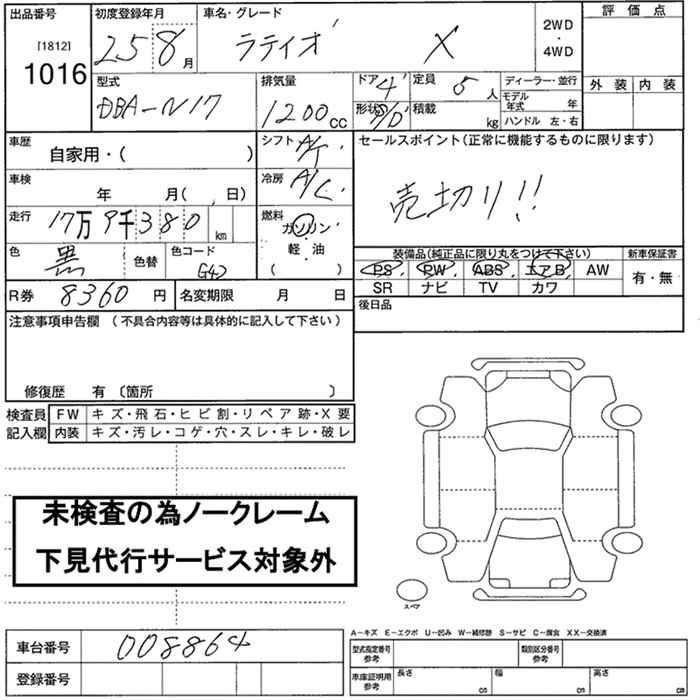 出品番号 初度登録年月 車名・グレード 2WD・4WD 評価点
[1812] 1016 25 8月 ラティオ X
型式 排気量 ドア 4 定員 5人 ディーラー・並行 外装 内装
DBA-N17 1200cc 形状 S/D 積載 kg モデル年式 年
ハンドル 左・右
車歴 自家用・( ) シフト A/T セールスポイント(正常に機能するものに限ります)
車検 年 月( 、日) 冷房 A/C 売切り!!
走行 17万9千380km 燃料 ガソリン・軽・油 ( )
色 黒 色替 色コード G42 装備品(純正品に限り丸をつけて下さい) 新車保証書
PS PW ABS エアB AW 有・無
R券 8360円 名変期限 月 日 SR ナビ TV カワ
後日品
注意事項申告欄 (不具合内容等は具体的に記入して下さい)
修復歴 有 (箇所 )
検査員記入欄 FW キズ・飛石・ヒビ割・リペア跡・X要
内装 キズ・汚レ・コゲ・穴・スレ・キレ・破レ
未検査の為ノークレーム
下見代行サービス対象外
スペア
A-キズ E-エクボ U-凹み W-補修跡 S-サビ C-腐食 XX-交換済
車台番号 008864 型式指定番号参考 類別区分番号参考
登録番号 車庫証明用参考 長さ cm 幅 cm 高さ cm